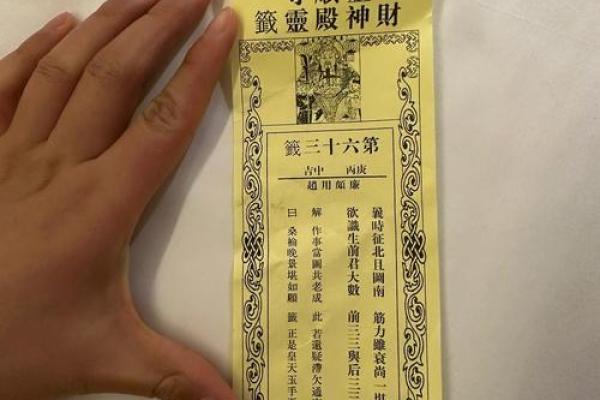 財神殿靈籤
第六十三籤
庚丙 中吉
廉頗用趙
曩時征北且圖南 筋力雖衰尚一堪
欲識生前君大數 前三三與后三三
解 作事當圖共老成 此 若還疑滯欠通
曰 桑榆晚景堪如願 籤 正是皇天玉手